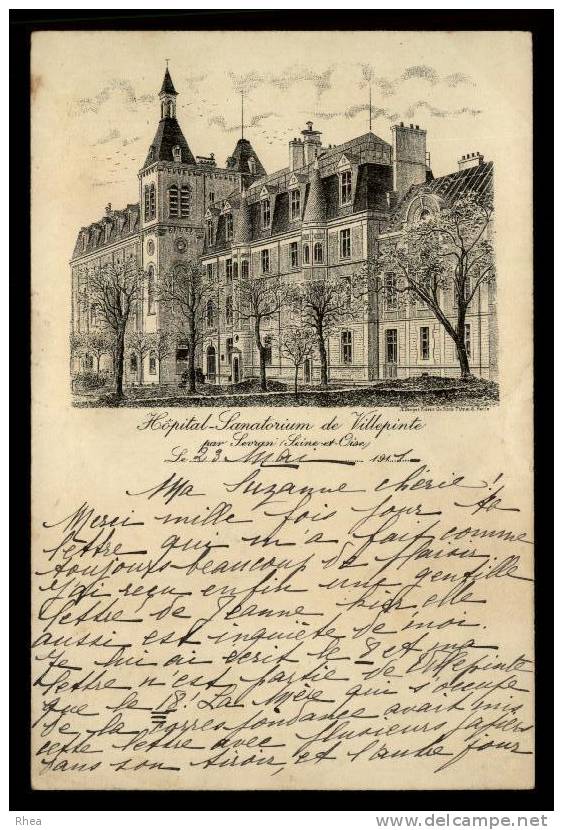 Hôpital-Sanatorium de Villepinte
par Sevran (Seine-et-Oise)
Le 23 Mai 1911
Ma Suzanne chérie!
Merci mille fois pour ta
lettre qui m'a fait comme
toujours beaucoup de plaisir
J'ai reçu enfin une gentille
lettre de Jeanne hier elle
aussi est inquiète de moi.
Je lui ai écrit le 8 et ma
lettre n'est partie de Villepinte
que le 18. La Mère qui s'occupe
de la correspondance avait mis
cette lettre avec plusieurs papiers
dans son tiroir, et l'autre jour
Rhea
www.delcampe.net